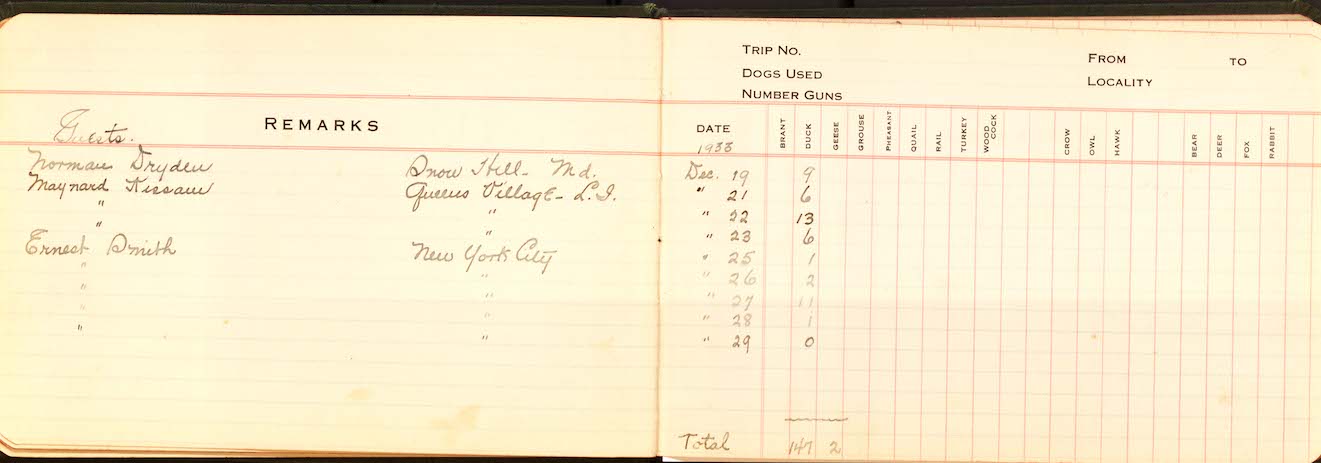 TRIP NO. FROM TO
DOGS USED LOCALITY
NUMBER GUNS
Guests. REMARKS
DATE BRANT DUCK GEESE GROUSE PHEASANT QUAIL RAIL TURKEY WOOD COCK CROW OWL HAWK BEAR DEER FOX RABBIT
1933
Norman Dryden Snow Hill - Md. Dec. 19 9
Maynard Kissam Queens Village - L.I. " 21 6
" " " 22 13
" " " 23 6
Ernest Smith New York City " 25 1
" " " 26 2
" " " 27 11
" " " 28 1
" " " 29 0
Total 147 2